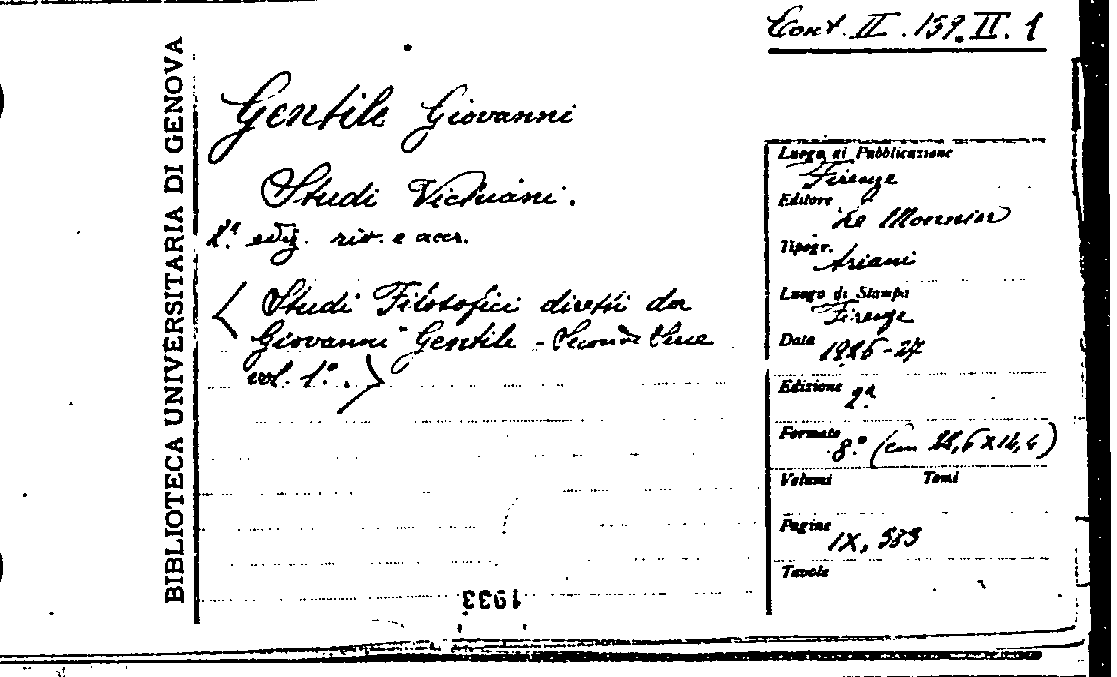 Cont. II. 159. II. 1
BIBLIOTECA UNIVERSITARIA DI GENOVA
Gentile Giovanni
Studi Vichiani.
2ª ediz. riv. e accr.
( Studi Filosofici diretti da
Giovanni Gentile - Seconda Serie
vol. 1º. )
Luogo di Pubblicazione
Firenze
Editore
Le Monnier
Tipogr.
Ariani
Luogo di Stampa
Firenze
Data
1926-27
Edizione
2ª
Formato
8.º (cm
Volumi Tomi
Pagine
IX,
Tavole
1933